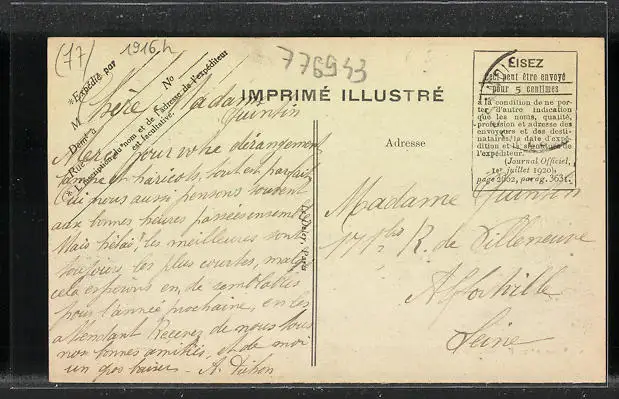 (77)
1916.h
776943
*Expédié par
M
Demt à
Rue
No
* L'inscription du nom et de l'adresse de l'expéditeur
est facultative.
IMPRIMÉ ILLUSTRÉ
Chère Madame
Quintin
Merci pour votre dérangement
en haricots, tout est parfait
nous aussi pensons souvent
aux bonnes heures passées ensemble
Mais hélas! les meilleures sont
toujours les plus courtes, mais
cela espérons en de semblables
pour l'année prochaine, en les
attendant Recevez de nous tous
nos bonnes amitiés, et de moi
un gros baiser - A.
LISEZ
Ceci peut être envoyé
pour 5 centimes
à la condition de ne por-
ter d'autre indication
que les noms, qualité,
profession et adresse des
envoyeurs et des desti-
nataires, la date d'expé-
dition et la signature de
l'expéditeur.
(Journal Officiel,
1er juillet 1920)
page 2002, parag. 363t.
Adresse
Madame Quintin
17 bis R. de Villeneuve
Alfortville
Seine